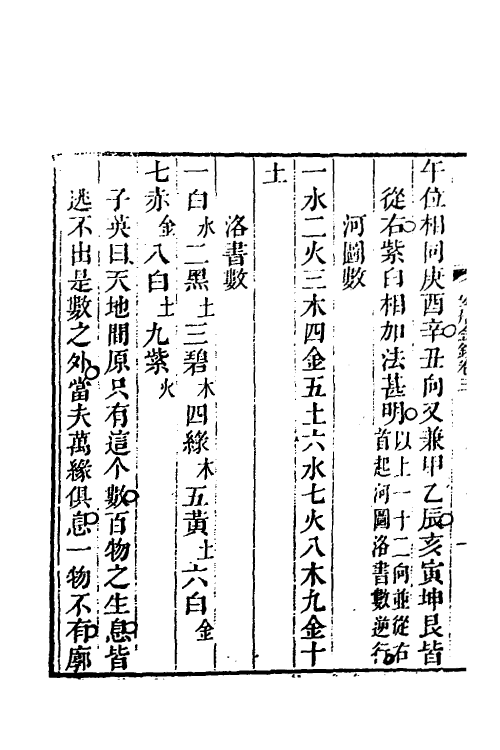 午位相同庚酉辛丑向又兼甲乙辰亥寅坤艮皆
從右紫白相加法甚明以上一十二向並從右首起河圖洛書數逆行
河圖數
一水二火三木四金五土六水七火八木九金十
土
洛書數
一白水二黑土三碧木四綠木五黃土六白金
七赤金八白土九紫火
子英曰天地間原只有這个數百物之生息皆
逃不出是數之外當夫萬緣俱息一物不有廓